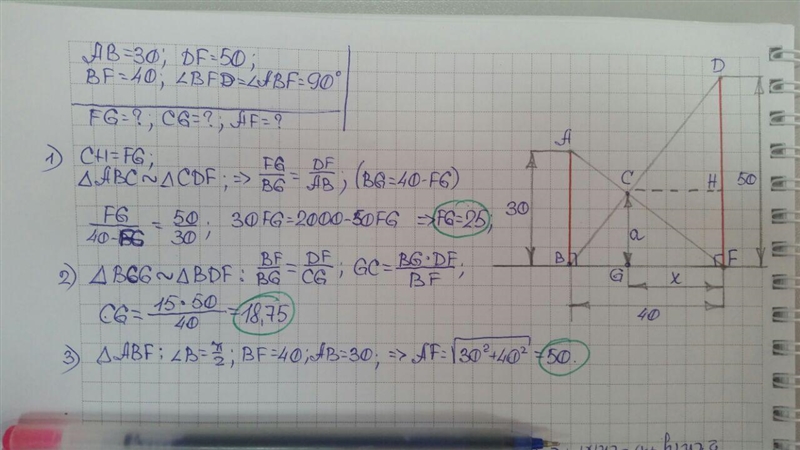 AB=30; DF=50;
BF=40; ∠BFD=∠ABF=90°
FG=?; CG=?; AF=?
1) CH=FG;
△ABC~△CDF; => FG/BG = DF/AB; (BG=40-FG)
FG/(40-FG) = 50/30; 30FG=2000-50FG => FG=25;
2) △BCG~△BDF: BF/BG = DF/CG; GC = BG·DF/BF;
CG = 15·50/40 = 18,75
3) △ABF: ∠B=π/2; BF=40; AB=30; => AF=√(30²+40²)=50.
D
A
C
H
50
30
a
B
G
x
F
40